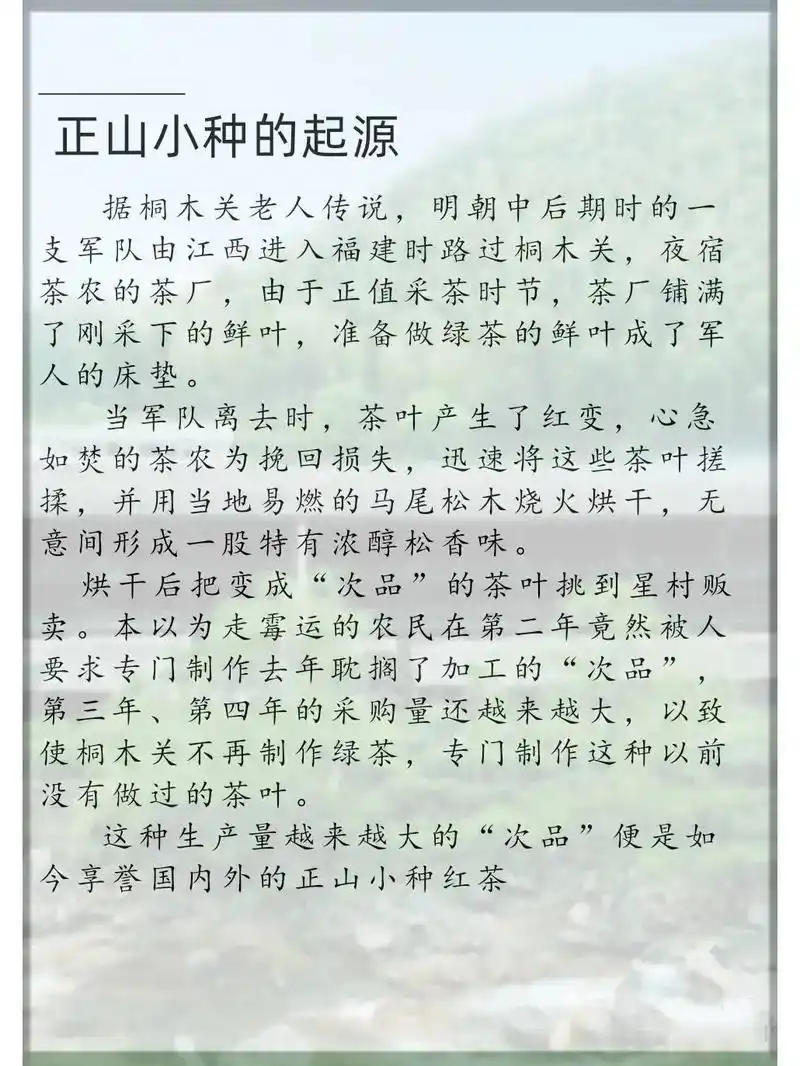 正山小种的起源
据桐木关老人传说，明朝中后期时的一
支军队由江西进入福建时路过桐木关，夜宿
茶农的茶厂，由于正值采茶时节，茶厂铺满
了刚采下的鲜叶，准备做绿茶的鲜叶成了军
人的床垫。
当军队离去时，茶叶产生了红变，心急
如焚的茶农为挽回损失，迅速将这些茶叶搓
揉，并用当地易燃的马尾松木烧火烘干，无
意间形成一股特有浓醇松香味。
烘干后把变成“次品”的茶叶挑到星村贩
卖。本以为走霉运的农民在第二年竟然被人
要求专门制作去年耽搁了加工的“次品”，
第三年、第四年的采购量还越来越大，以致
使桐木关不再制作绿茶，专门制作这种以前
没有做过的茶叶。
这种生产量越来越大的“次品”便是如
今享誉国内外的正山小种红茶